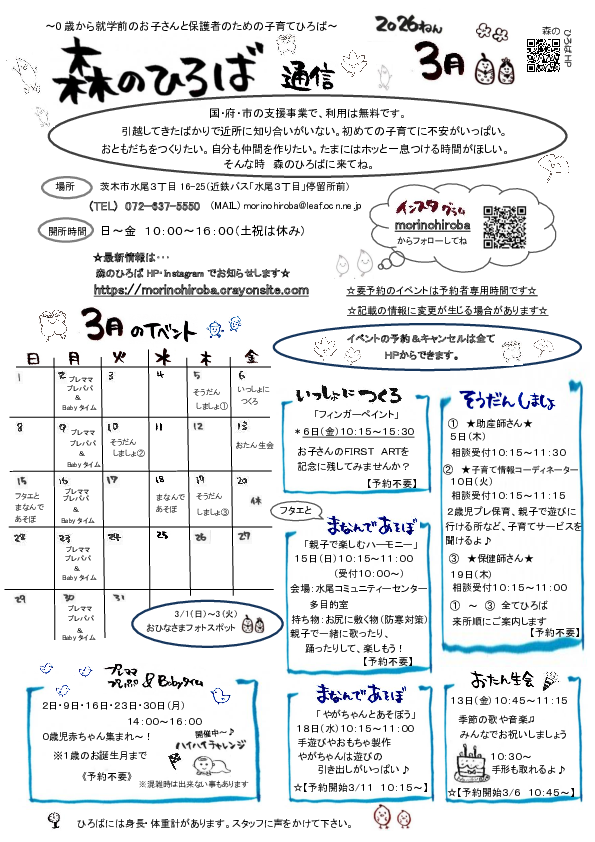 ～0歳から就学前のお子さんと保護者のための子育てひろば～
2026ねん
3月
森の
ひろばHP
森のひろば 通信
国・府・市の支援事業で、利用は無料です。
引越してきたばかりで近所に知り合いがいない。初めての子育てに不安がいっぱい。
おともだちをつくりたい。自分も仲間を作りたい。たまにはホッと一息つける時間がほしい。
そんな時 森のひろばに来てね。
場所 茨木市水尾3丁目16-25(近鉄バス「水尾3丁目」停留所前)
(TEL) 072-637-5550 (MAIL) morinohiroba@leaf.ocn.ne.jp
開所時間 日～金 10:00～16:00(土祝は休み)
インスタグラム
morinohiroba
からフォローしてね
★最新情報は・・・
森のひろば HP・instagram でお知らせします★
https://morinohiroba.crayonsite.com
☆要予約のイベントは予約者専用時間です☆
☆記載の情報に変更が生じる場合があります☆
イベントの予約&キャンセルは全て
HPからできます。
3月のイベント
日 月 火 水 木 金
1 2 3 4 5 6
プレママ
プレパパ
&
Babyタイム
そうだん
しましょ①
いっしょに
つくろ
8 9 10 11 12 13
プレママ
プレパパ
&
Babyタイム
そうだん
しましょ②
おたん生会
15 16 17 18 19 20
フタエと
まなんで
あそぼ
プレママ
プレパパ
&
Babyタイム
まなんで
あそぼ
そうだん
しましょ③
休
22 23 24 25 26 27
プレママ
プレパパ
&
Babyタイム
29 30 31
プレママ
プレパパ
&
Babyタイム
3/1(日)～3(火)
おひなさまフォトスポット
いっしょにつくろ
「フィンガーペイント」
*6日(金)10:15～15:30
お子さんのFIRST ARTを
記念に残してみませんか?
【予約不要】
フタエと
まなんであそぼ
「親子で楽しむハーモニー」
15日(日)10:15～11:00
(受付10:00～)
会場:水尾コミュニティーセンター
多目的室
持ち物:お尻に敷く物(防寒対策)
親子で一緒に歌ったり、
踊ったりして、楽しもう!
【予約不要】
そうだんしましょ
① ★助産師さん★
5日(木)
相談受付10:15～11:30
② ★子育て情報コーディネーター
10日(火)
相談受付10:15～11:15
2歳児プレ保育、親子で遊びに
行ける所など、子育てサービスを
聞けるよ♪
③ ★保健師さん★
19日(木)
相談受付10:15～11:00
① ～ ③ 全てひろば
来所順にご案内します
【予約不要】
プレママ
プレパパ &Babyタイム
2日・9日・16日・23日・30日(月)
14:00～16:00
0歳児赤ちゃん集まれ～!
※1歳のお誕生月まで
《予約不要》
開催中～♪
ハイハイチャレンジ
※混雑時は出来ない事もあります
まなんであそぼ
「やがちゃんとあそぼう」
18日(水)10:15～11:00
手遊びやおもちゃ製作
やがちゃんは遊びの
引き出しがいっぱい♪
☆【予約開始3/11 10:15～】
おたん生会
13日(金)10:45～11:15
季節の歌や音楽♫
みんなでお祝いしましょう
10:30～
手形も取れるよ♪
☆【予約開始3/6 10:45～】
ひろばには身長・体重計があります。スタッフに声をかけて下さい。